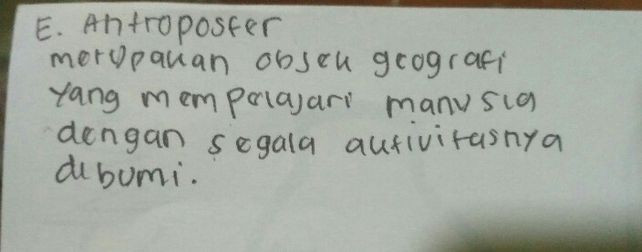 E. Antroposfer
merupakan objek geografi
yang mempelajari manusia
dengan segala aktivitasnya
di bumi.